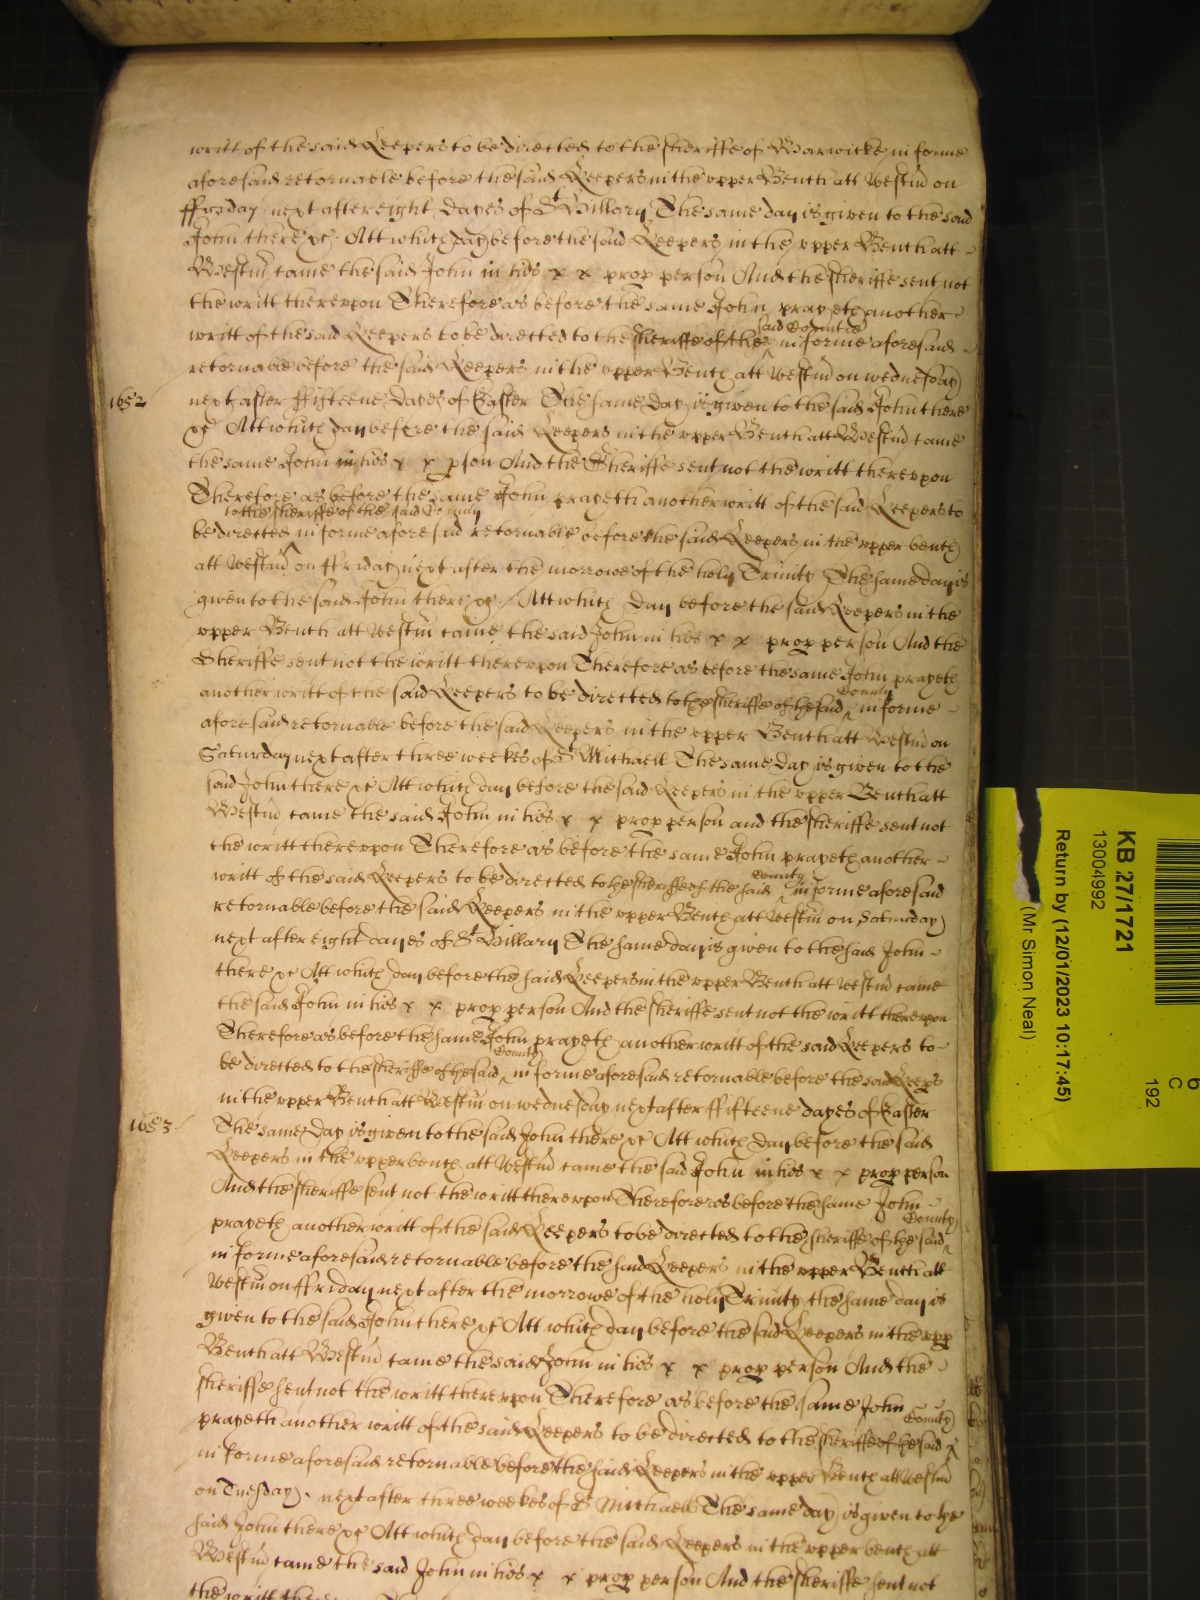 writt of the said Keepers to be directed to the sheriffe of Warwicke in forme
aforesaid retornable before the said Keepers in the upper Bench att Westm̃ on
next after eight dayes of St Hillary The same day is given to the said
John there &c. Att which day before the said Keepers in the upper Bench att
Westm̃ came the said John in his x x prop person And the sheriffe sent not
the writt thereupon Therefore as before the same John prayeth another
said Countie
writt of the said Keepers to be directed to the sheriffe of the ^ in forme aforesaid
retornable before the said Keepers in the upper Bench att Westm̃ on wednesday
1652
next after ffifteene dayes of Easter The same day is given to the said John there
&c Att which day before the said Keepers in the upper Bench att Westm̃ came
the same John in his x x pson And the Sheriffe sent not the writt thereupon
Therefore as before the same John prayeth another writt of the said Keepers to
to the sheriffe of the said County
be directed ^ in forme aforesaid retornable before the said Keepers in the upper bench
att Westm̃ on ffriday next after the morrowe of the holy Trinity The same day is
given to the said John there &c. Att which day before the said Keepers in the
upper Bench att Westm̃ came the said John in his x x prop person And the
Sheriffe sent not the writt thereupon Therefore as before the same John prayeth
County
another writt of the said Keepers to be directed to the sheriffe of the said ^ in forme
aforesaid retornable before the said Keepers in the upper Bench att Westm̃ on
Saturday next after three weekes of St Michaell The same day is given to the
said John there &c Att which day before the said Keepers in the upper Bench att
Westm̃ came the said John in his x x prop person and the sheriffe sent not
the writt thereupon Therefore as before the same John prayeth another
County
writt of the said Keepers to be directed to the sheriffe of the said ^ in forme aforesaid
retornable before the said Keepers in the upper Bench att Westm̃ on Saturday
next after eight dayes of St Hillary The same day is given to the said John
there &c Att which day before the said Keepers in the upper Bench att Westm̃ came
the said John in his x x prop person And the sheriffe sent not the writt thereupon
Therefore as before the same John prayeth another writt of the said Keepers to
County
be directed to the sheriffe of the said ^ in forme aforesaid retornable before the said Keeps
in the upper Bench att Westm̃ on wednesday next after ffifteene dayes of Easter
1653
The same day is given to the said John there &c Att which day before the said
Keepers in the upper bench att Westm̃ came the said John in his x x prop person
And the sheriffe sent not the writt thereupon Therefore as before the same John
County
prayeth another writt of the said Keepers to be directed to the sheriffe of the said ^
in forme aforesaid retornable before the said Keepers in the upper Bench att
Westm̃ on ffriday next after the morrowe of the holy Trinity the same day is
given to the said John there &c Att which day before the said Keepers in the upp
Bench att Westm̃ came the said John in his x x prop person And the
sheriffe sent not the writt thereupon Therefore as before the same John
County
prayeth another writt of the said Keepers to be directed to the sheriffe of the said ^
in forme aforesaid retornable before the said Keepers in the upper Bench att Westm̃
on Tuesday next after three weekes of St Michaell The same day is given to the
said John there &c Att which day before the said Keepers in the upper bench att
Westm̃ came the said John in his x x prop person And the sheriffe sent not
the writt
KB 27/1721
13004992
Return by (12/01/2023 10:17:45)
(Mr Simon Neal)
6
C
192